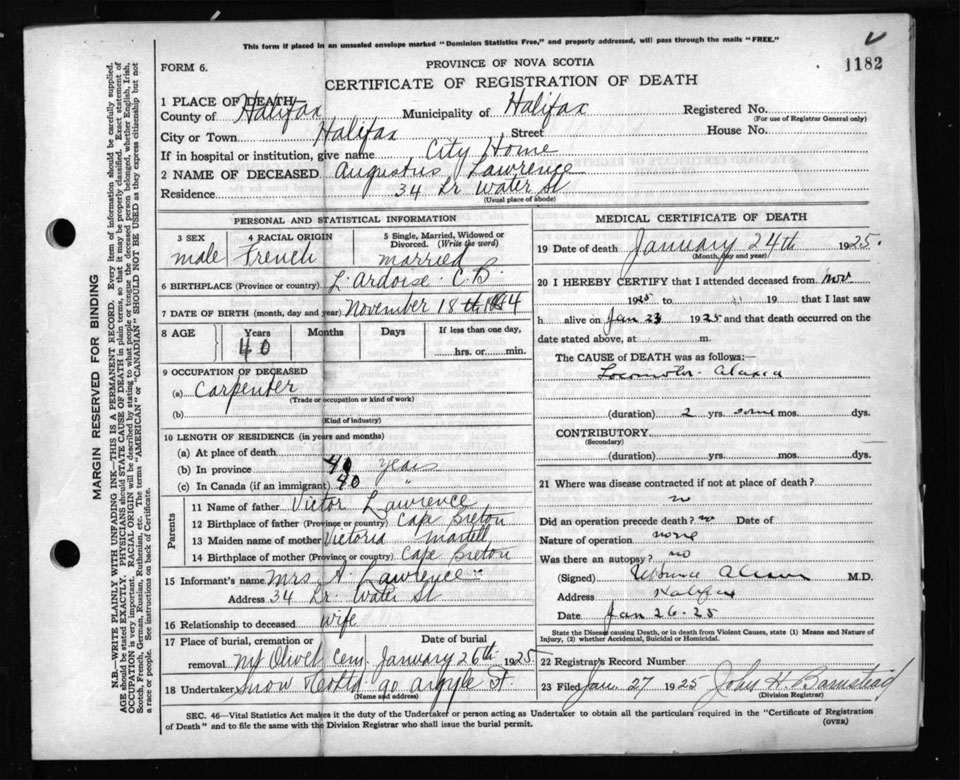 This form if placed in an unsealed envelope marked "Dominion Statistics Free," and properly addressed, will pass through the mails "FREE."
FORM 6.
PROVINCE OF NOVA SCOTIA
1182
CERTIFICATE OF REGISTRATION OF DEATH
1 PLACE OF DEATH
County of Halifax Municipality of Halifax Registered No.
(For use of Registrar General only)
City or Town Halifax Street House No.
If in hospital or institution, give name City Home
2 NAME OF DECEASED Augustus Lawrence
Residence 34 Lr Water St
(Usual place of abode)
PERSONAL AND STATISTICAL INFORMATION
3 SEX 4 RACIAL ORIGIN 5 Single, Married, Widowed or Divorced. (Write the word)
male French married
6 BIRTHPLACE (Province or country) L'Ardoise C.B.
7 DATE OF BIRTH (month, day and year) November 18th
8 AGE Years Months Days If less than one day,
40 hrs. or min.
9 OCCUPATION OF DECEASED
(a) Carpenter
(Trade or occupation or kind of work)
(b)
(Kind of industry)
10 LENGTH OF RESIDENCE (in years and months)
(a) At place of death
(b) In province 40 years
(c) In Canada (if an immigrant) 40 "
Parents
11 Name of father Victor Lawrence
12 Birthplace of father (Province or country) Cape Breton
13 Maiden name of mother Victoria Martell
14 Birthplace of mother (Province or country) Cape Breton
15 Informant's name Mrs A. Lawrence
Address 34 Lr. Water St
16 Relationship to deceased wife
17 Place of burial, cremation or removal Mt Olivet Cem. Date of burial January 26th 1925
18 Undertaker Snow & Co Ltd 90 Argyle St.
(Name and address)
MEDICAL CERTIFICATE OF DEATH
19 Date of death January 24th 1925.
(Month, day and year)
20 I HEREBY CERTIFY that I attended deceased from Nov
1925 to 19 that I last saw
h alive on Jan 23 1925 and that death occurred on the
date stated above, at m.
The CAUSE of DEATH was as follows:—
Locomotor Ataxia
(duration) 2 yrs. some mos. dys.
CONTRIBUTORY
(Secondary)
(duration) yrs. mos. dys.
21 Where was disease contracted if not at place of death?
no
Did an operation precede death? no Date of
Nature of operation none
Was there an autopsy? no
(Signed) M.D.
Address Halifax
Date Jan 26-25
State the Disease causing Death, or in death from Violent Causes, state (1) Means and Nature of Injury, (2) whether Accidental, Suicidal or Homicidal.
22 Registrar's Record Number
23 Filed Jan. 27 1925 John H. Barnstead
(Division Registrar)
SEC. 46—Vital Statistics Act makes it the duty of the Undertaker or person acting as Undertaker to obtain all the particulars required in the "Certificate of Registration
of Death" and to file the same with the Division Registrar who shall issue the burial permit. (OVER)
MARGIN RESERVED FOR BINDING
N.B.—WRITE PLAINLY WITH UNFADING INK—THIS IS A PERMANENT RECORD. Every item of information should be carefully supplied.
AGE should be stated EXACTLY. PHYSICIANS should STATE CAUSE OF DEATH in plain terms, so that it may be properly classified. Exact statement of
OCCUPATION is very important. RACIAL ORIGIN will be described by stating to what people or tongue the deceased person belonged, whether English, Irish,
Scotch, French, German, Russian, Ruthenian, etc. The terms "AMERICAN" or "CANADIAN" SHOULD NOT BE USED as they express citizenship but not
a race or people. See instructions on back of Certificate.